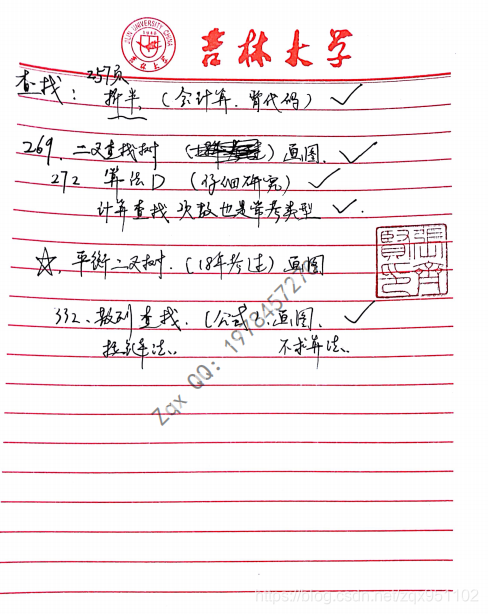 JILIN UNIVERSITY CHINA
吉林大学
257页
查找: 折半. (会计算. 背代码) ✓
269. 二叉查找树 画图. ✓
272 算法D (仔细研究) ✓
计算查找次数也是常考类型 ✓.
☆. 平衡二叉树. (18年考过) 画图
332、散列查找. (公式). 画图. ✓
不求算法.
Zqx QQ: 1978457270
https://blog.csdn.net/zqx951102